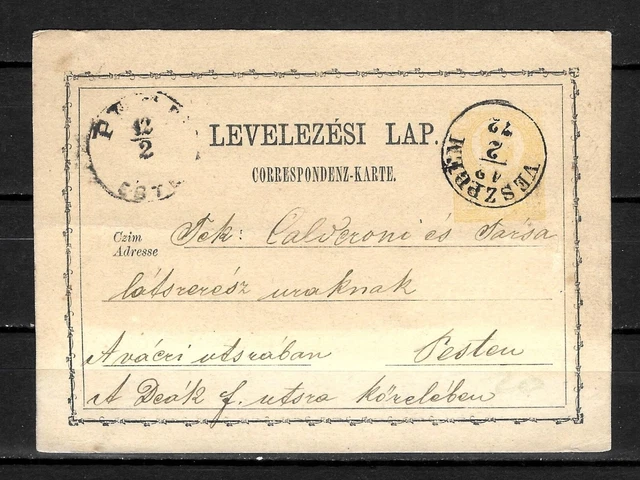 LEVELEZÉSI LAP.
CORRESPONDENZ-KARTE.
12
2
VESZPRÉM
2
72
Czim
Adresse
Tek: Calderoni és Társa
látszerész uraknak
A váczi utszában Pesten
A Deák f. utsza közelében